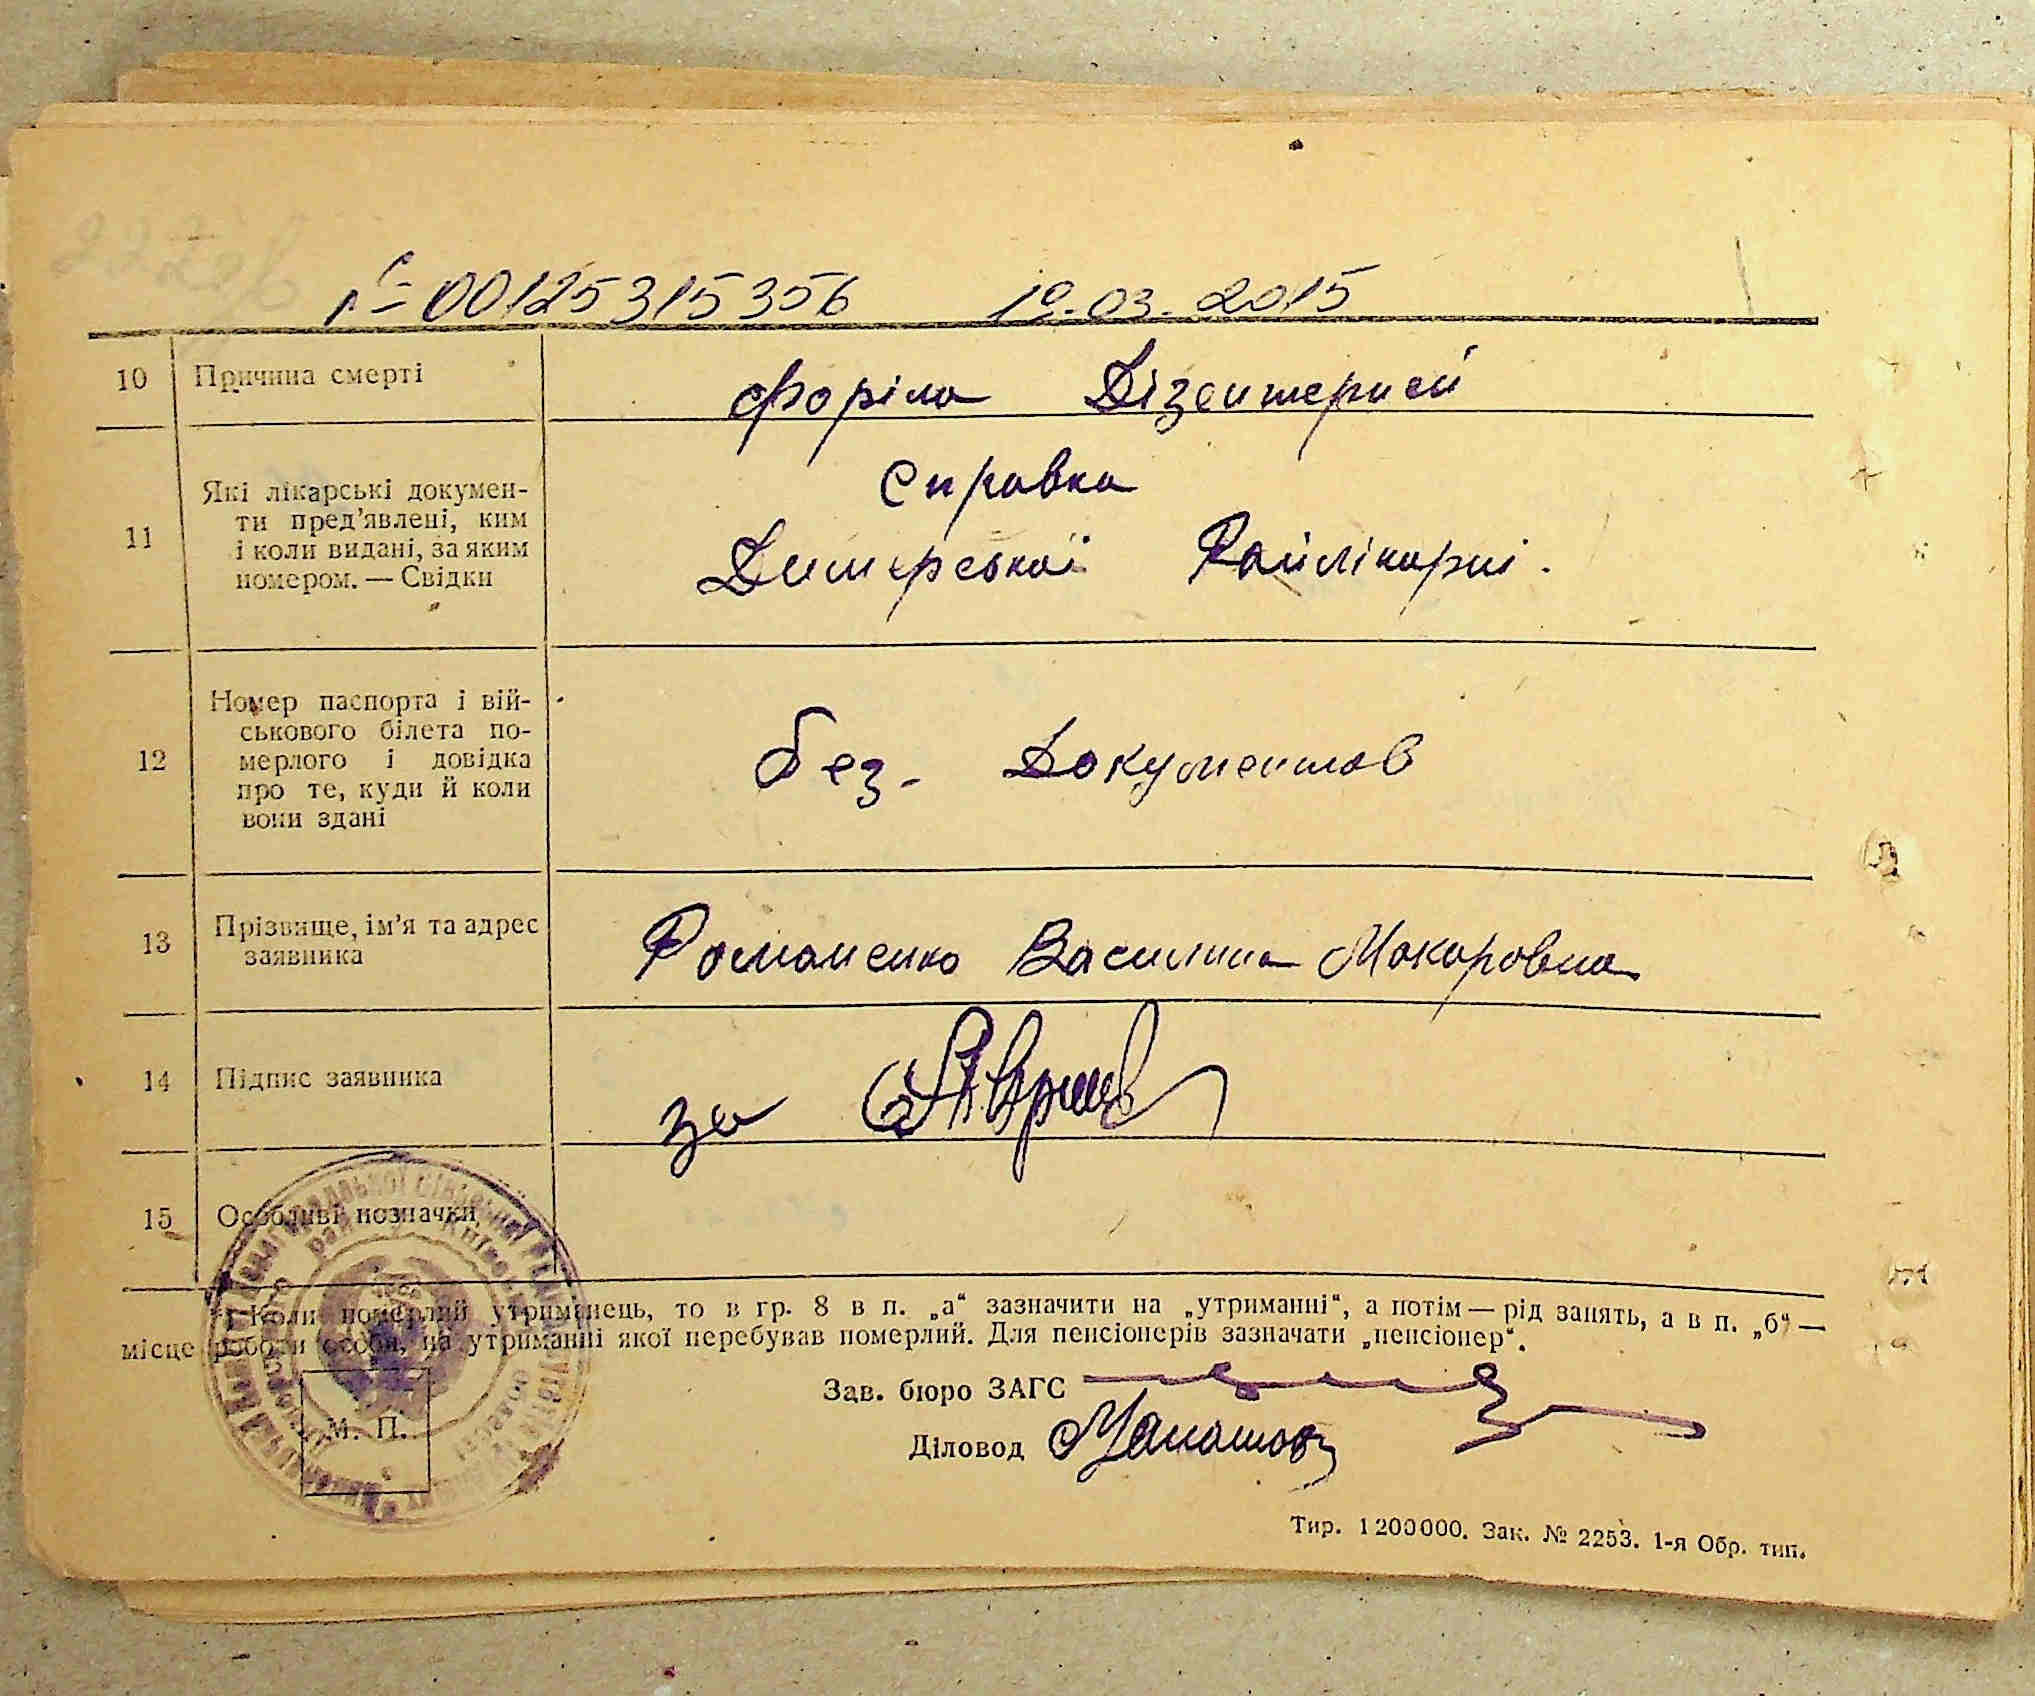 № 00125315356 10.03.2015
10 Причина смерті
Форіла Дізентерией
11 Які лікарські докумен-
ти пред'явлені, ким
і коли видані, за яким
номером. — Свідки
Справка
Димерської Райлікарні.
12 Номер паспорта і вій-
ськового білета по-
мерлого і довідка
про те, куди й коли
вони здані
без- Документов
13 Прізвище, ім'я та адрес
заявника
Романенко Василина Макаровна
14 Підпис заявника
за
15 Особливі позначки
*) Коли померлий утриманець, то в гр. 8 в п. „а“ зазначити на „утриманні“, а потім — рід занять, а в п. „б“ —
місце роботи особи, на утриманні якої перебував померлий. Для пенсіонерів зазначати „пенсіонер“.
Зав. бюро ЗАГС
Діловод
М. П.
Тир. 1200000. Зак. № 2253. 1-я Обр. тип.